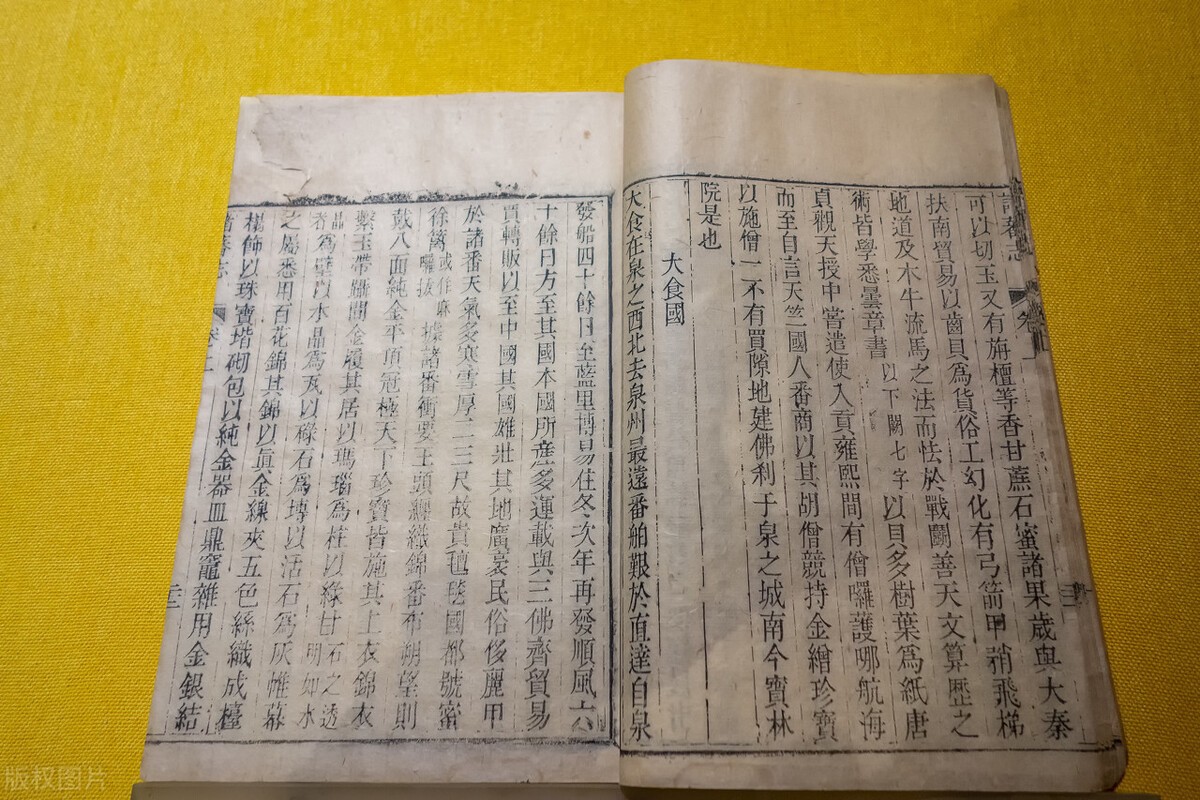 諸蕃志
可以切玉又有旃檀等香甘蔗石蜜諸果歲與大秦
扶南貿易以齒貝爲貨俗工幻化有弓箭甲矟飛梯
地道及木牛流馬之法而怯於戰鬭善天文算歷之
術皆學悉曇章書以下闕七字以貝多樹葉爲紙唐
貞觀天授中甞遣使入貢雍熙間有僧囉護哪航海
而至自言天竺國人番商以其胡僧競持金繒珍寶
以施僧一不有買隙地建佛刹于泉之城南今寶林
院是也
大食國
大食在泉之西北去泉州最遠番舶艱於直達自泉
發船四十餘日至藍里博易住冬次年再發順風六
十餘日方至其國本國所產多運載與三佛齊貿易
賈轉販以至中國其國雄壯其地廣袤民俗侈麗甲
於諸番天氣多寒雪厚二三尺故貴氊毯國都號蜜
徐籬或作麻囉拔據諸番衝要王頭纏織錦番布朔望則
戴八面純金平頂冠極天下珍寶皆施其上衣錦衣
繫玉帶躡間金履其居以瑪瑙爲柱以綠甘石之透明如水
晶者爲壁以水晶爲瓦以碌石爲磚以活石爲灰帷幕
之屬悉用百花錦其錦以眞金線夾五色絲織成檯
榻飾以珠寶堦砌包以純金器皿鼎竈雜用金銀結
諸蕃志 卷上 三